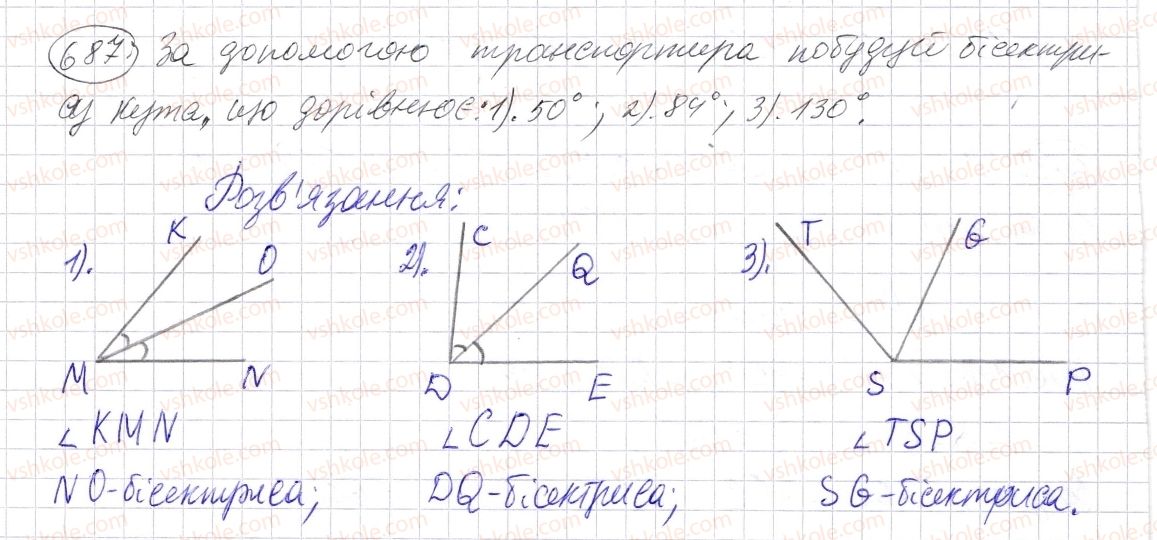 687) За допомогою транспортира побудуй бісектри-
су кута, що дорівнює: 1). 50°; 2). 84°; 3). 130°.
Розв'язання:
1). K O M N
2). C Q D E
3). T G S P
∠KMN ∠CDE ∠TSP
NO-бісектриса; DQ-бісектриса; SG-бісектриса.
vshkole.com